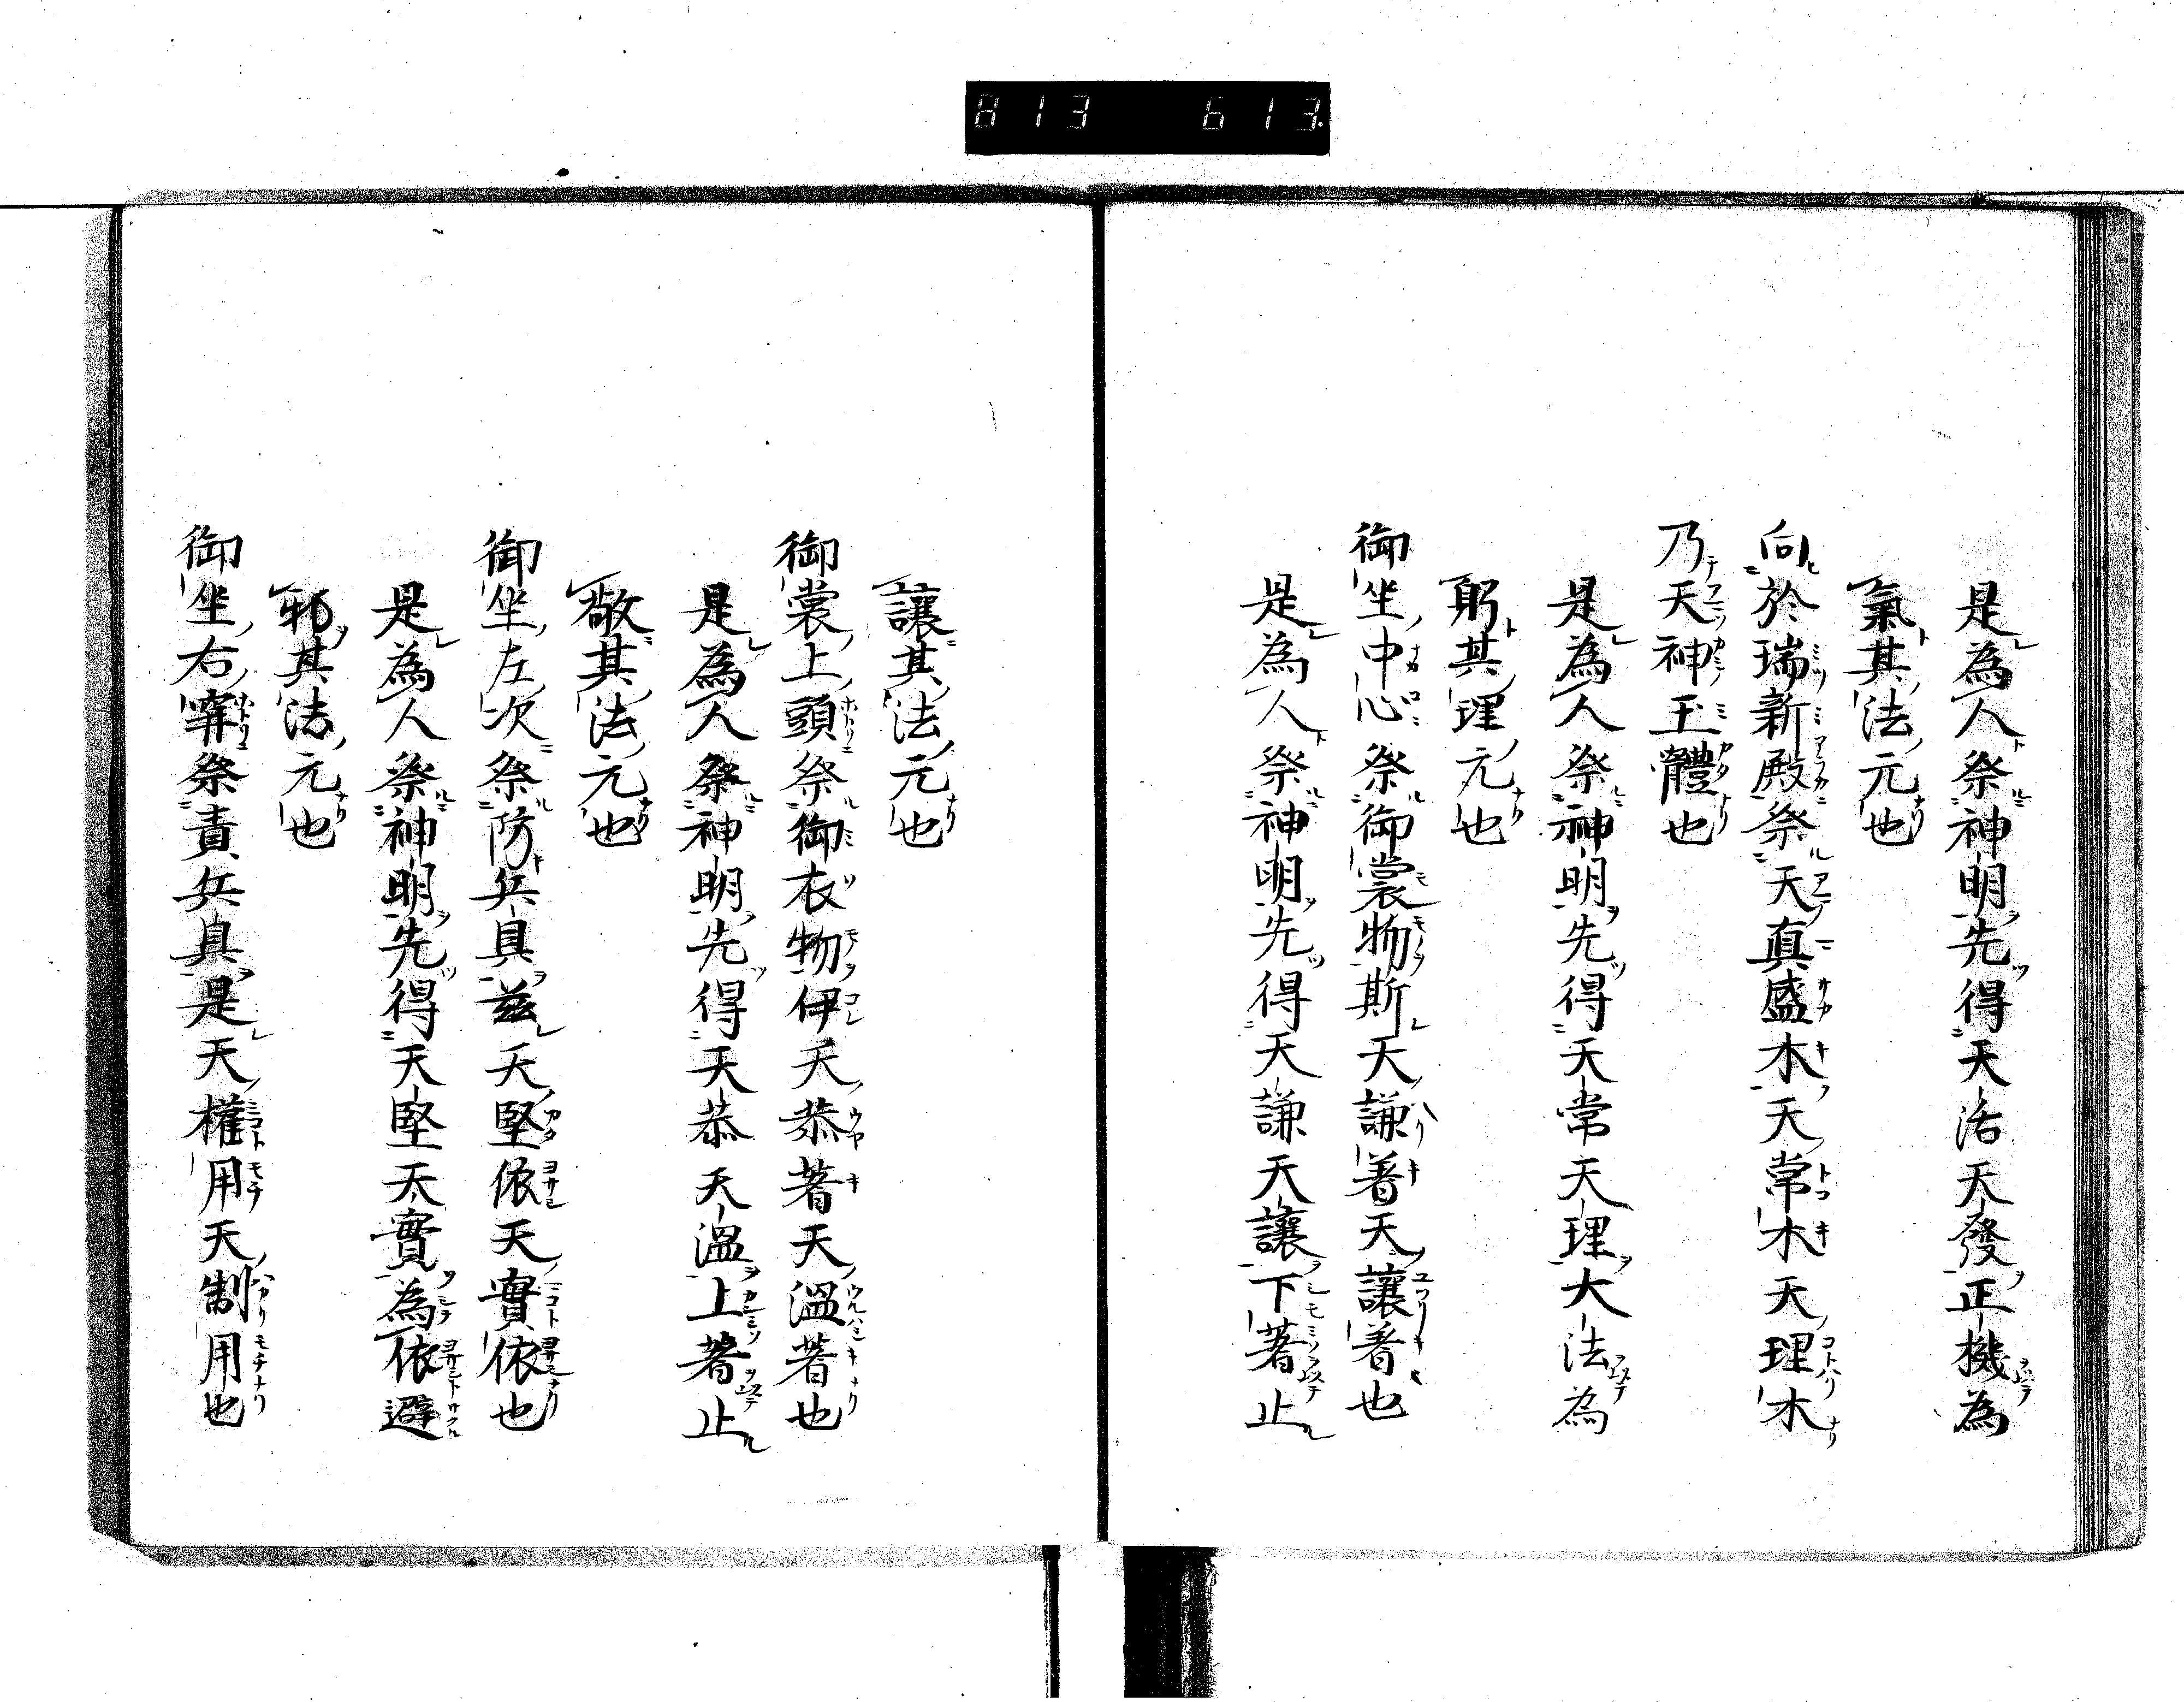 813 613.
是為人祭神明先得天活天發正機為
氣其法元也
向於瑞新殿祭天真盛木天常木天理木
乃天神玉體也
是為人祭神明先得天常天理大法為
躬其理元也
御坐中心祭御裳物斯天謙著天讓著也
是為人祭神明先得天謙天讓下著止
讓其法元也
御裳上頭祭御衣物伊天恭著天溫著也
是為人祭神明先得天恭天溫上著止
敬其法元也
御坐左次祭防兵具茲天堅依天實依也
是為人祭神明先得天堅天實為依避
邪其法元也
御坐右寧祭責兵具是天權用天制用也